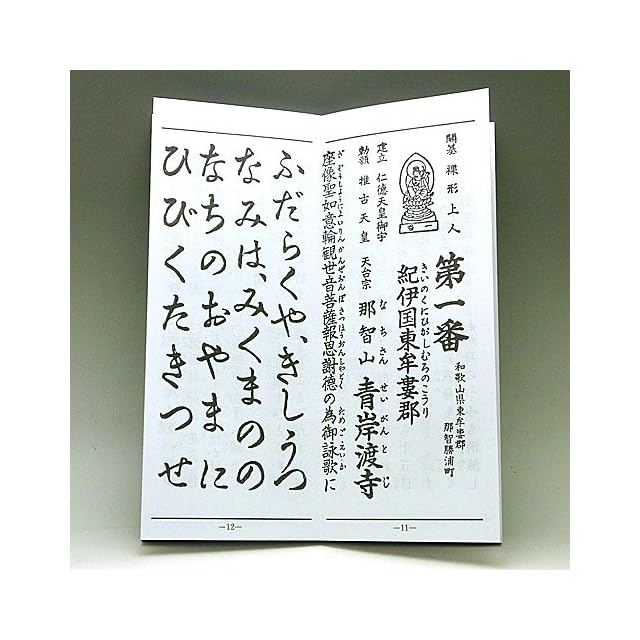 開基 裸形上人
第一番
和歌山県東牟婁郡
那智勝浦町
きいのくにひがしむろのこうり
紀伊国東牟婁郡
なちさん せいがんとじ
建立 仁徳天皇御宇
勅額 推古天皇 天台宗 那智山 青岸渡寺
ざぞうしょうにょいりんかんぜおんぼさつほうおんしゃとく ためごえいか
座像聖如意輪観世音菩薩報恩謝徳の為御詠歌に
—11—
ふだらくや、きしうつ
なみは、みくまのの
なちのおやまに
ひびくたきつせ
—12—